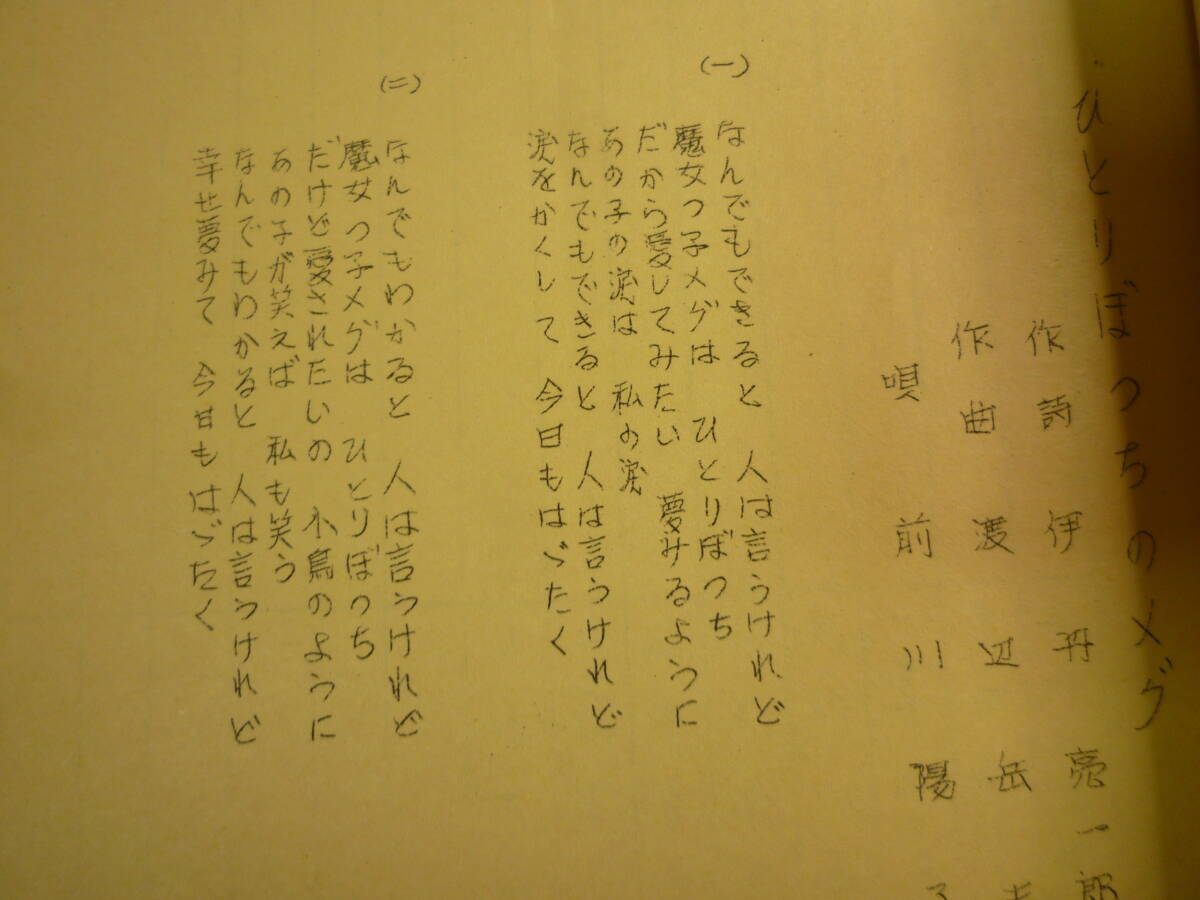 ひとりぼっちのメグ
作詩 伊丹亮一郎
作曲 渡辺岳夫
唄 前川陽子
(一)
なんでもできると 人は言うけれど
魔女っ子メグは ひとりぼっち
だから愛してみたい 夢みるように
あの子の涙は 私の涙
なんでもできると 人は言うけれど
涙をかくして 今日もはゞたく
(二)
なんでもわかると 人は言うけれど
魔女っ子メグは ひとりぼっち
だけど愛されたいの 小鳥のように
あの子が笑えば 私も笑う
なんでもわかると 人は言うけれど
幸せ夢みて 今日もはゞたく